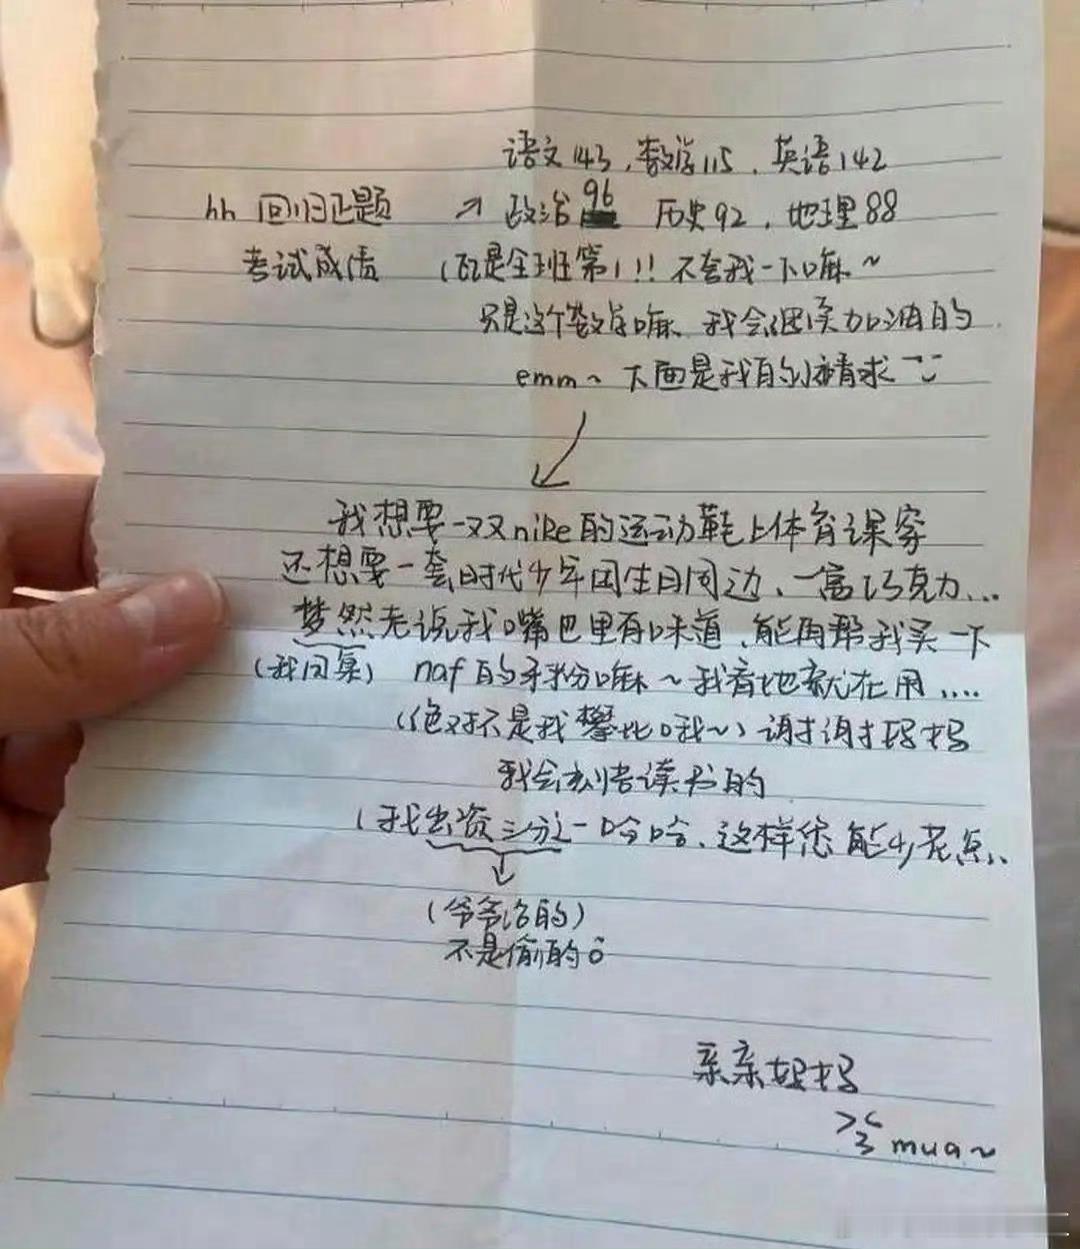 语文143，数学115，英语142
hh 回归正题 ↗ 政治96 历史92，地理88
考试成绩 （瓦是全班第1!! 不夸我一下嘛~
只是这个数学嘛、我会继续加油的
emm~ 下面是我的小请求
我想要一双nike的运动鞋上体育课穿
还想要一套时代少年团生日周边、一盒巧克力...
梦然老说我嘴巴里有味道、能再帮我买一下
（我同桌） naf的牙粉嘛~我看她就在用....
（绝对不是我攀比哦~）谢谢妈妈
我会刻苦读书的
（我出资三分之一哈哈、这样您能少花点、
（爷爷给的）
不是偷的
亲亲妈妈
mua~